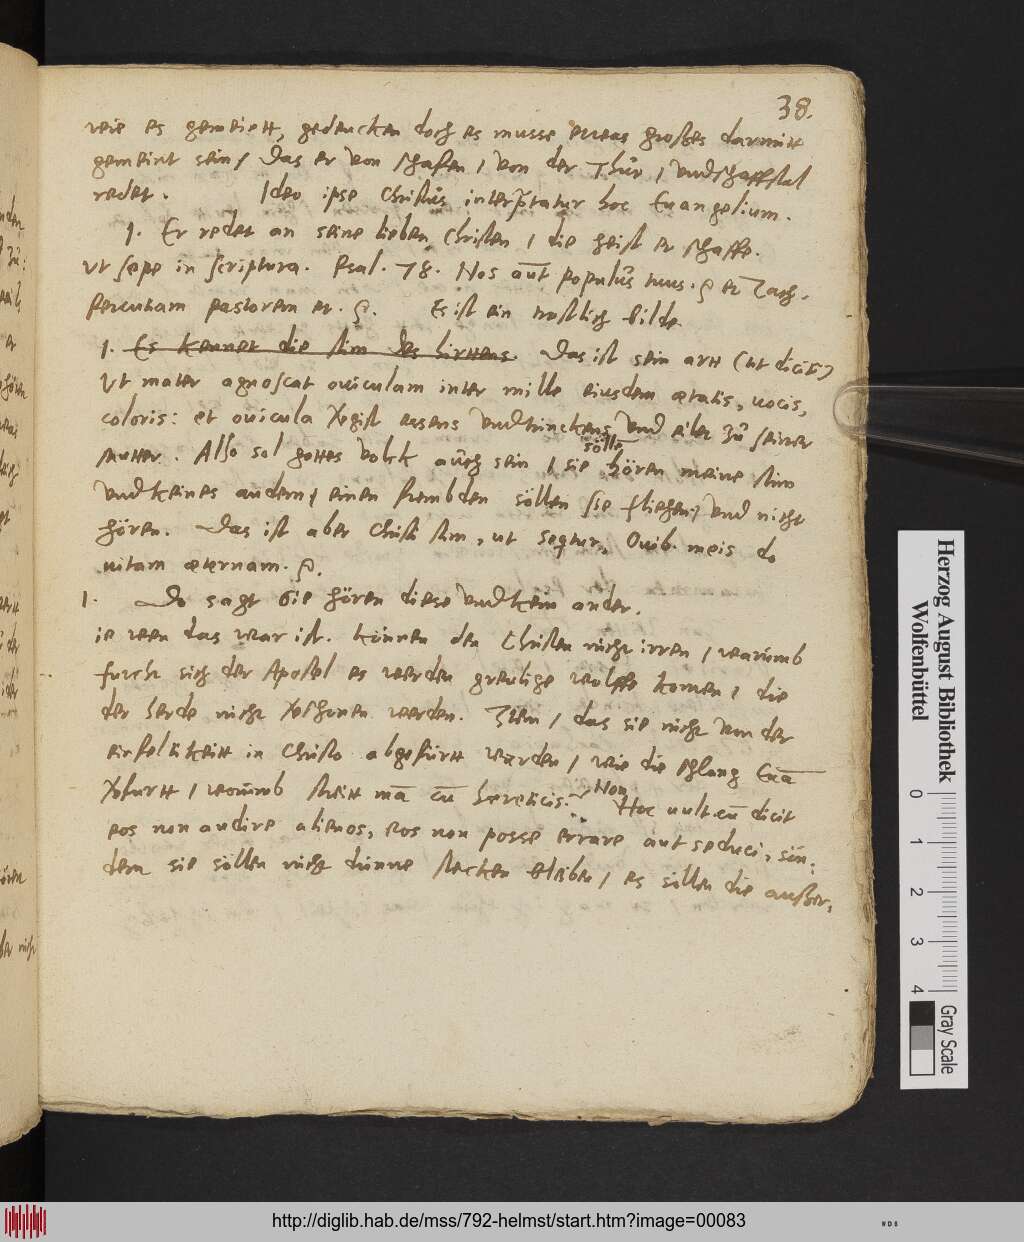 38.
wie es gemeiett, gedencken doch es musse etwas grosses darmitt
gemeint sein / Das er von schafen / von der Thür / und schaffstal
redet. Ideo ipse Christus interpretatur hoc Euangelium.
1. Er redet an seine lieben Christen / die heist er schaffe.
Vt sæpe in scriptura. Psal. 78. Nos aut populus tuus. et Zach.
percutiam pastorem et. Es ist ein trostlich bilde
1. Es kennet die stim des hirttens. Das ist sein artt (ut dicitis)
Vt mater agnoscat ouiculam inter mille eiusdem ætatis, uocis,
coloris: et ouicula vergist essens und trinckens und eilet zu seiner
mutter. Also sol gottes volck auch sein / sie söllē hören meine stim
und keines andern / einen frembden söllen sie fliehen / und nicht
hören. Das ist aber Christi stim, ut seqtur, Ouib. meis do
uitam æternam.
1. Do sagt Sie hören diese und kein ander.
ie wen das war ist. können den Christen nicht irren / warumb
furcht sich der Apostel es werden greulige wolffe komen / die
der herde nicht verschonen werden. Item / das sie nicht von der
einfeltikeitt in Christo abgefürtt würden / wie die schlang Euā
verfurtt / worumb streitt mā cū hereticis? Non
Hoc uult cū dicit
eos non audire alienos, eos non posse errare aut seduci, sun:
dern sie söllen nicht dinne stecken bleiben / es söllen die ausser,
Herzog August Bibliothek
Wolfenbüttel
0 1 2 3 4
Gray Scale
http://diglib.hab.de/mss/792-helmst/start.htm?image=00083